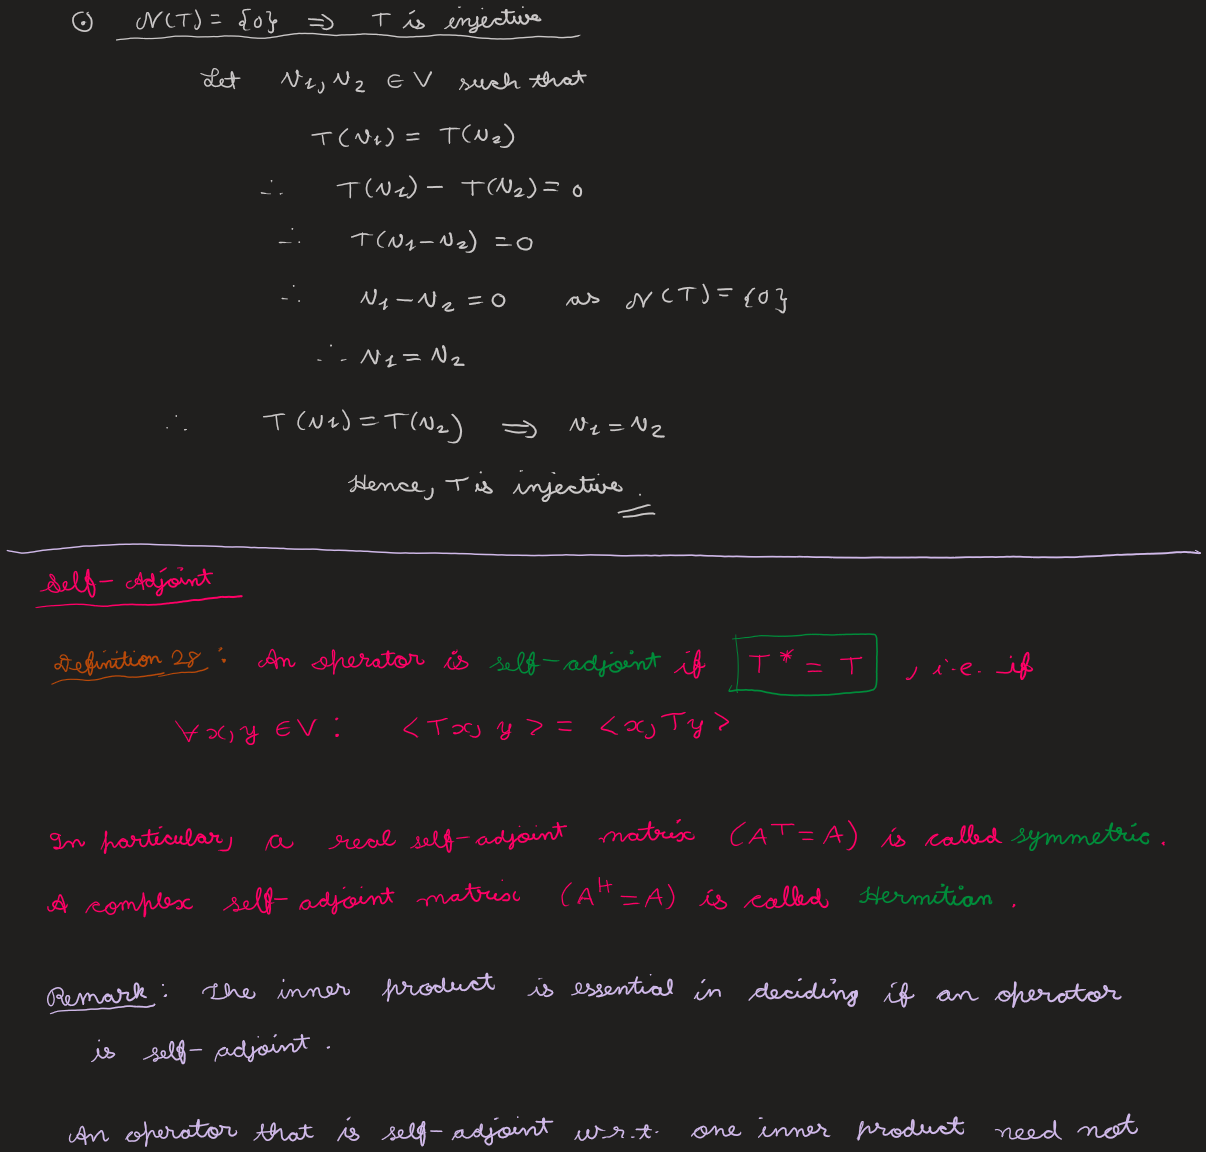 ⊙ N(T) = {0} ⇒ T is injective
Let v₁, v₂ ∈ V such that
T(v₁) = T(v₂)
∴ T(v₁) - T(v₂) = 0
∴ T(v₁ - v₂) = 0
∴ v₁ - v₂ = 0 as N(T) = {0}
∴ v₁ = v₂
∴ T(v₁) = T(v₂) ⇒ v₁ = v₂
Hence, T is injective.
Self-Adjoint
Definition 28: An operator is self-adjoint if T* = T, i.e. if
∀x, y ∈ V: <Tx, y> = <x, Ty>
In particular, a real self-adjoint matrix (Aᵀ = A) is called symmetric.
A complex self-adjoint matrix (Aᴴ = A) is called Hermitian.
Remark: The inner product is essential in deciding if an operator
is self-adjoint.
An operator that is self-adjoint w.r.t. one inner product need not